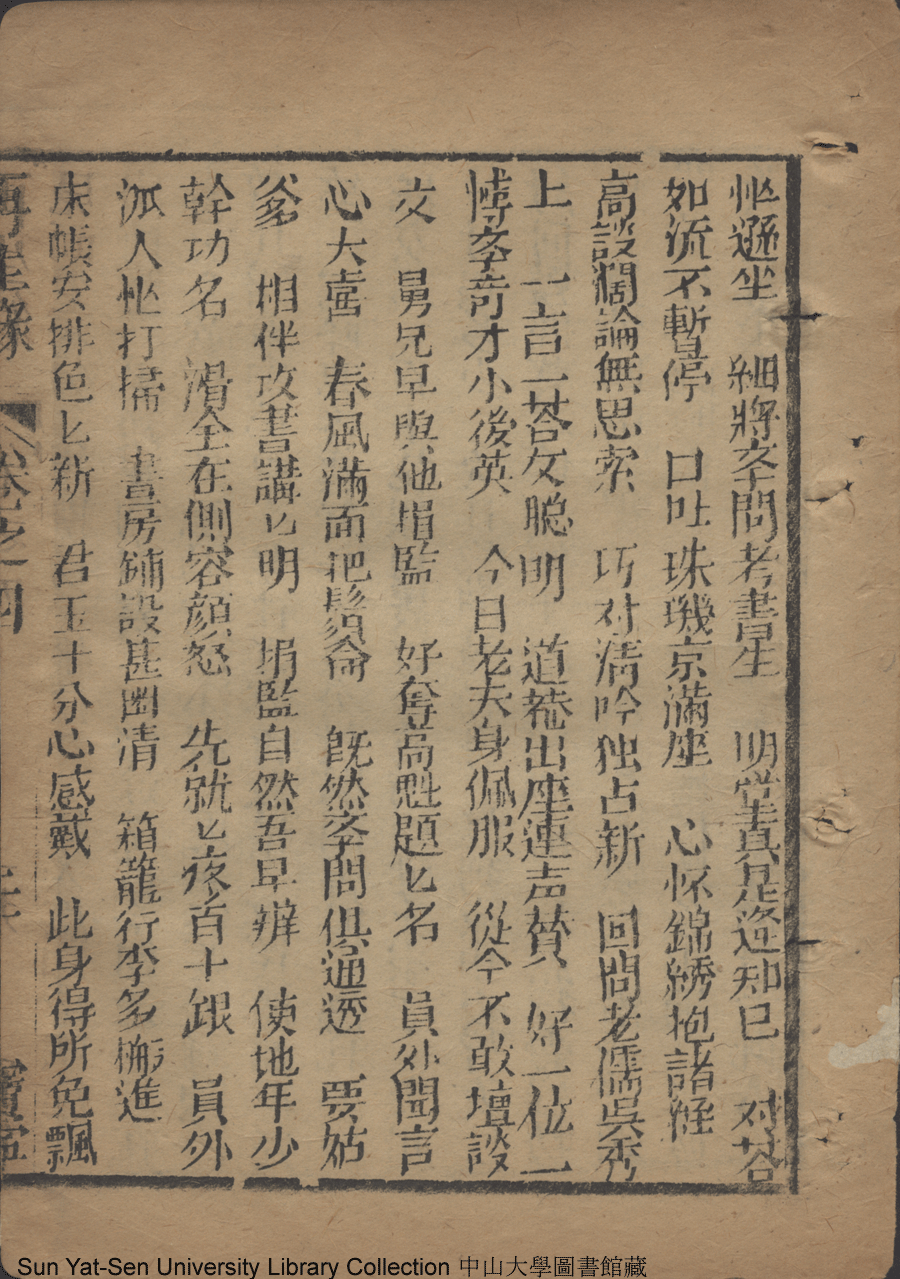 忙遜坐 細將孛問考書生 明堂真是逢知已 对荅
如流不暫停 口吐珠璣京滿座 心怀錦綉抱諸經
高談濶論無思索 巧对清吟独占新 回問老儒吳秀
上 一言一荅攵聪明 道菴出座連声賛 好一位一
博孛竒才小後英 今日老夫身佩服 從今不敢壇談
文 舅兄早與他捐監 好奪髙魁題匕名 員外聞言
心大喜 春風滿面把鬍侖 既然孛問俱通透 要姑
爹 相伴攻書講匕明 捐監自然吾早辦 使他年少
幹功名 滑全在側容顏怒 先就匕疼百十跟 員外
派人忙打掃 書房鋪設甚幽清 箱籠行李多搬進
床帳安排色匕新 君玉十分心感戴 此身得所免飄
再生緣 卷之四
Sun Yat-Sen University Library Collection 中山大學圖書館藏